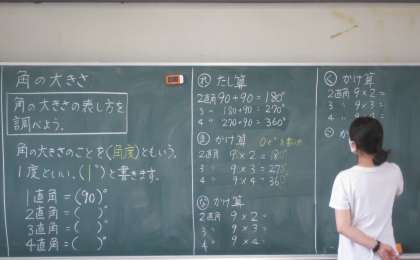 角の大きさ
角の大きさの表し方を
調べよう。
角の大きさのことを(角度)ともいう。
1度といい、(1°)と書きます。
1直角=(90)°
2直角=( )°
3直角=( )°
4直角=( )°
たし算
2直角 90+90=180°
3 〃 180+90=270°
4 〃 270+90=360°
かけ算
2直角 9×2=180°
3 〃 9×3=270°
4 〃 9×4=360°
な かけ算
2 9×2=
3 9×3=
4 9×4=
く かけ算
2直角 9×2=
3 〃 9×3=
4 〃 9×